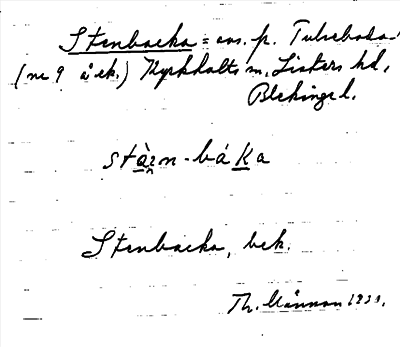 Stenbacka = avs. p. Tulsebada
(nr 9 å ek.) Kyrkhults sn, Listers hd,
Blekinge l.
stàᶒn-báka
Stenbacka, bek.
Th. Wännman 1933.